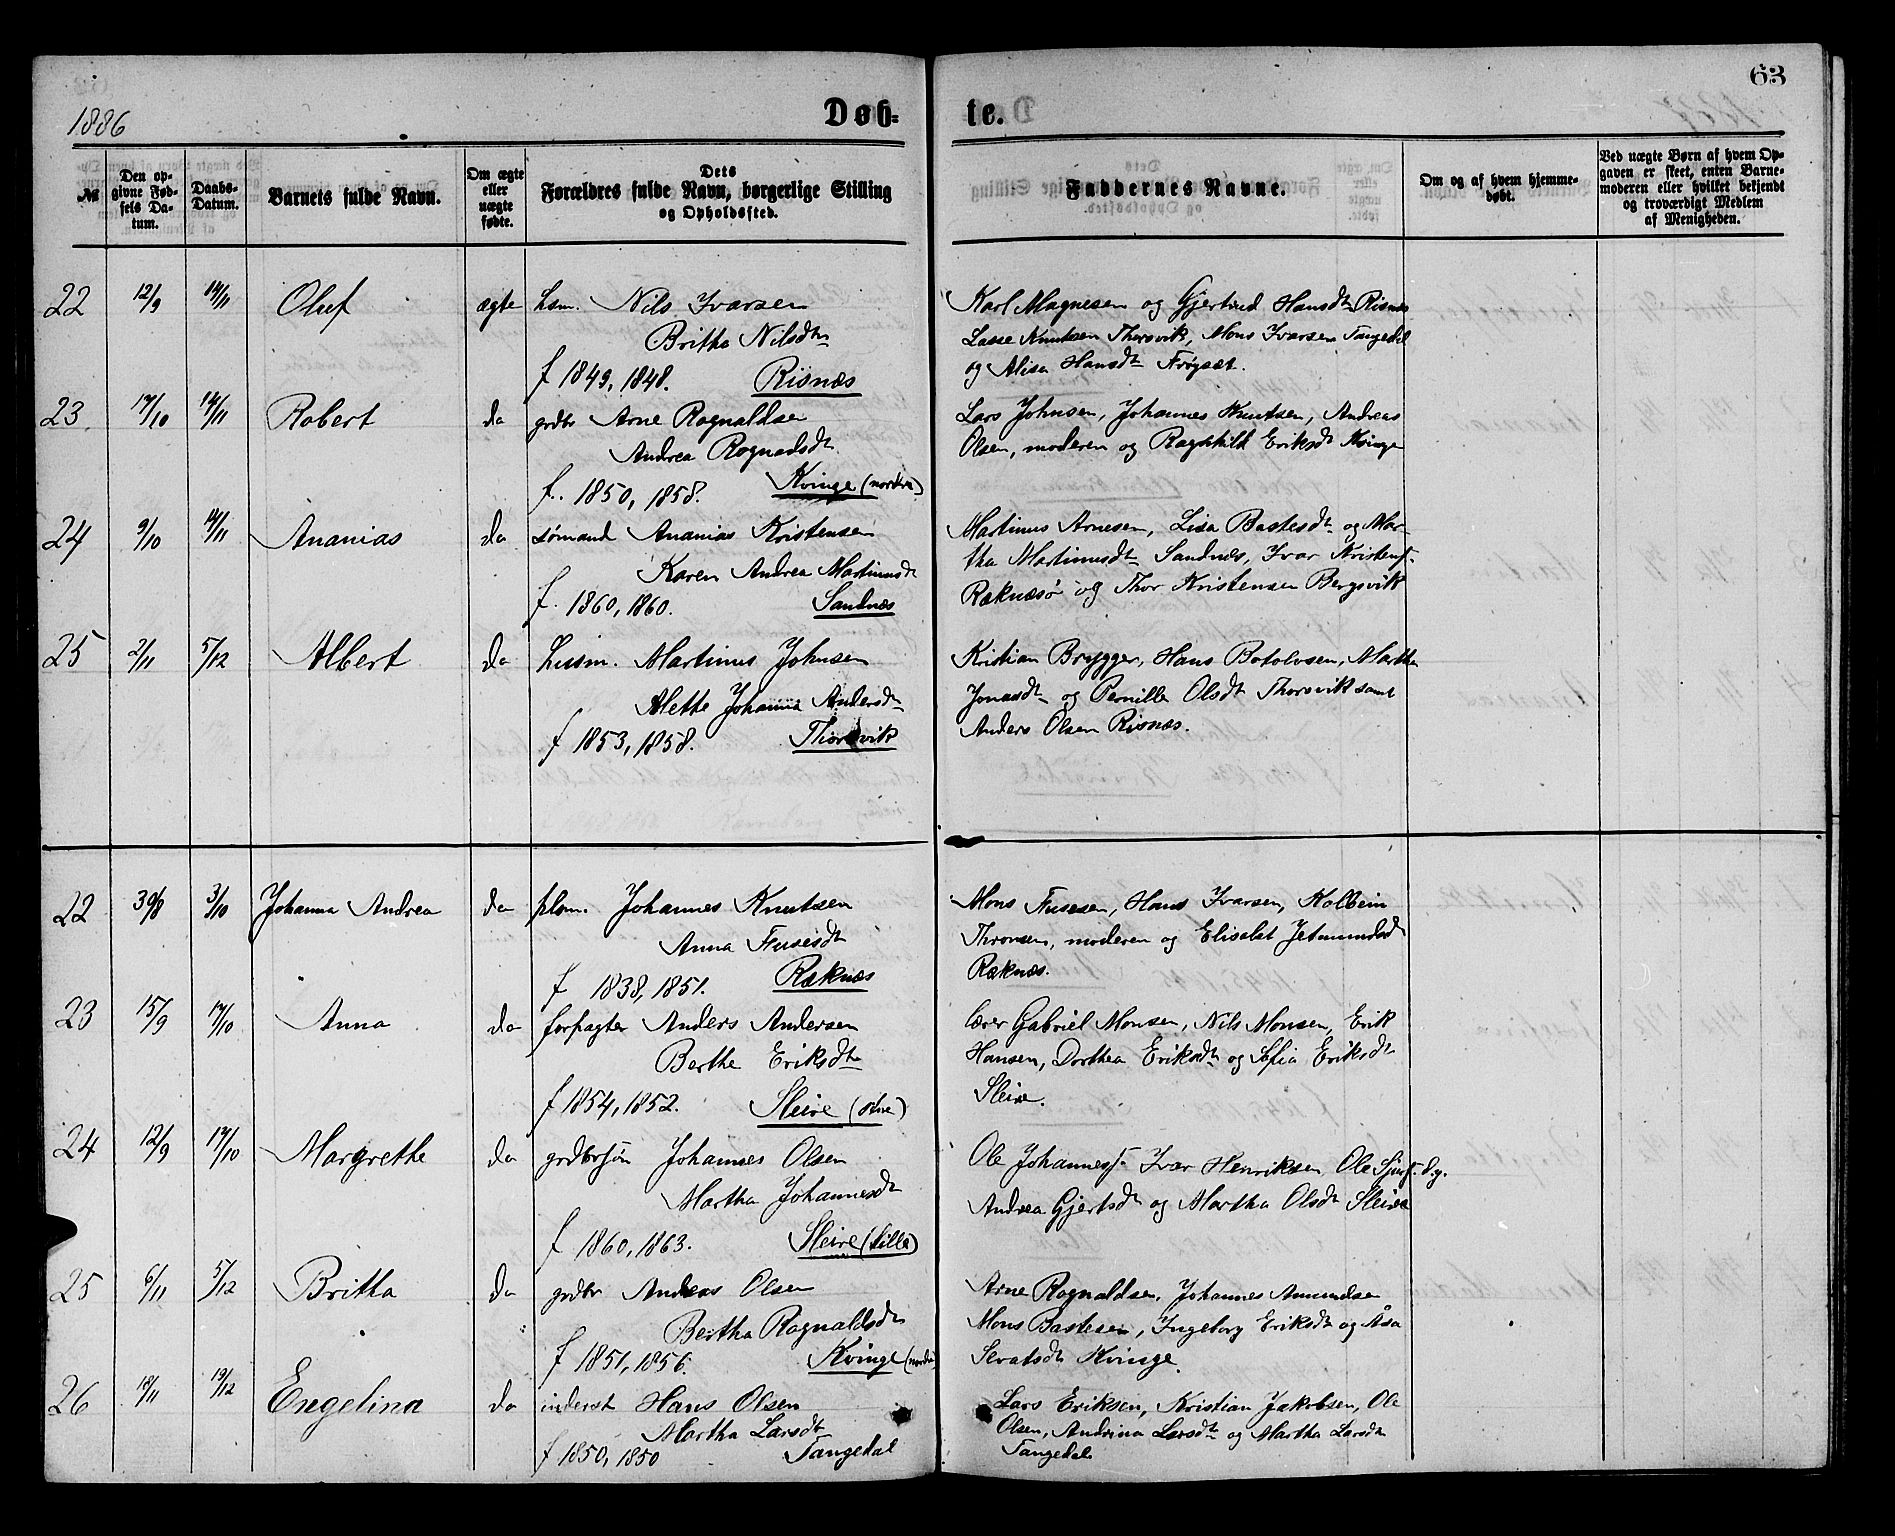 63
1886
Døb-
te.
№
Den op-
givne Fød-
sels Da-
tum.
Daabs-
Datum.
Barnets fulde Navn.
Om ægte
eller
uægte
fødte.
Dets
Forældres fulde Navn, borgerlige Stilling
og Opholdssted.
Faddernes Navne.
Om og af hvem hjemme-
døbt.
Ved uægte Børn af hvem Op-
gaven er skeet, enten Barne-
moderen eller hvilket bekjendt
og troværdigt Medlem
af Menigheden.
22 12/9 14/11 Oluf ægte hsm. Nils Ivarsen
Britha Nilsdtr
f 1849, 1848. Risnæs
Karl Magnesen og Gjertrud Hansdtr Risnæs
Lasse Knutsen Thorsvik, Mons Ivarsen Tangedal
og Alisa Hansdtr Frøyset.
23. 17/10 14/11 Robert do grdbr Arne Rognaldsen
Andrea Rognadsdtr
f. 1850, 1858. Kvinge (nordre)
Lars Johnsen, Johannes Knutsen, Andreas
Olsen, moderen og Ragnhild Eriksdtr Kvinge
24 9/10 14/11 Ananias do sømand Ananias Kristensen
Karen Andrea Martinusdtr
f. 1860, 1860. Sandnæs
Martinus Arnesen, Lisa Bastesdtr og Mar-
tha Martinusdtr Sandnæs, Ivar Kristens.
Ræknesø og Thor Kristensen Bergsvik
25 2/11 5/12 Albert do husm. Martinus Johnsen
Alette Johanna Andersdtr
f 1853, 1858. Thorsvik
Kristian Brygger, Hans Botolvsen, Martha
Jonasdtr og Pernille Olsdt Thorsvik samt
Anders Olsen Risnæs.
22 30/8 3/10 Johanna Andrea do plsm. Johannes Knutsen
Anna Fusesdt
f 1838, 1851. Ræknæs
Mons Fusesen, Hans Ivarsen, Kolbein
Thronsen, moderen og Elisabet Jetmundsdt
Ræknæs.
23 15/9 17/10 Anna do forpagter Anders Andersen
Berthe Eriksdtr
f 1854, 1852. Sleire (øvre)
lærer Gabriel Monsen, Nils Monsen, Erik
Hansen, Dorthea Eriksdtr og Sofia Eriksdtr
Sleire.
24 12/9 17/10 Margrethe do grdbrsøn Johannes Olsen
Martha Johannesdt
f 1860, 1863. Sleire (lille)
Ole Johanness. Ivar Henriksen Ole Sjurs.
Andrea Gjertsdt og Martha Olsdt Sleire
25 6/11 5/12 Britha do grdbr Andreas Olsen
Bertha Rognaldsdtr
f 1851, 1856. Kvinge (nordre)
Arne Rognaldsen, Johannes Amundsen
Mons Bastesen, Ingeborg Eriksdt og Åsa
Sevatsdt Kvinge.
26 18/11 19/12 Engelina do inderst Hans Olsen
Martha Larsdtr
f 1850, 1850 Tangedal
Lars Eriksen, Kristian Jakobsen, Ole
Olsen, Andrina Larsdtr og Martha Larsdtr
Tangedal